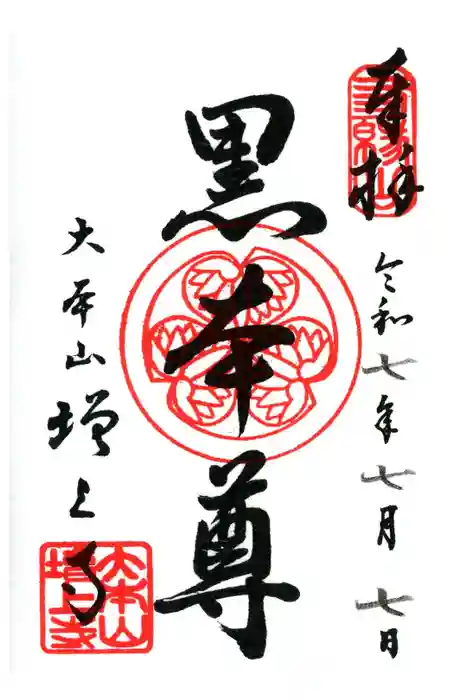 奉拝
令和七年七月七日
黒本尊
大本山増上寺
三縁山
大本山
増上寺